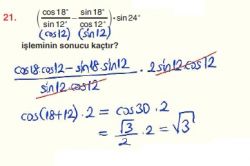 21. (cos18°/sin12° - sin18°/cos12°) · sin24°
(cos12) (sin12)
işleminin sonucu kaçtır?
cos18.cos12 - sin18.sin12 / sin12.cos12 · 2sin12.cos12
cos(18+12).2 = cos30.2
= √3/2 .2 = √3